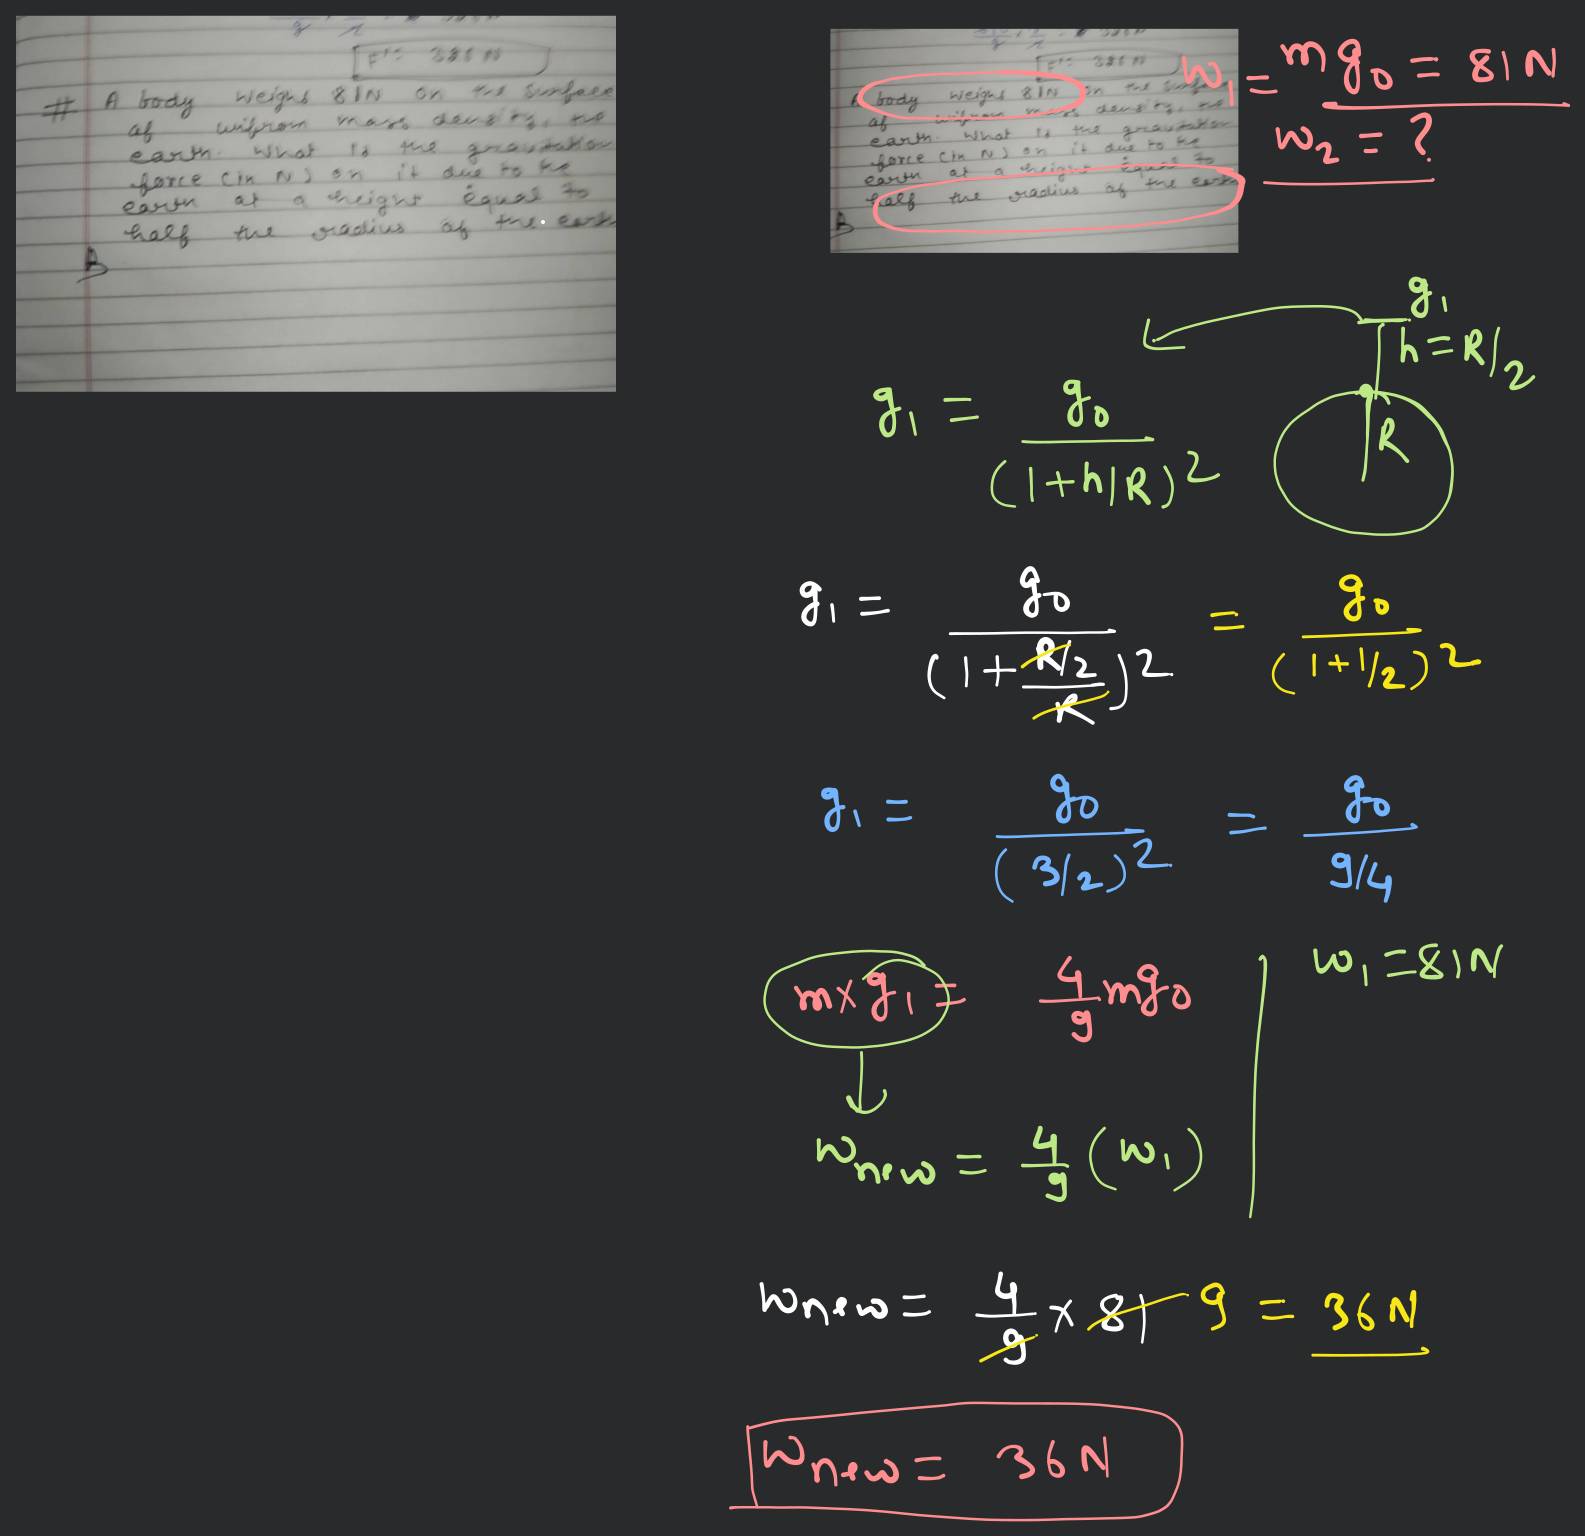 F' = 326 N
# A body weighs 81N on the surface
of unifrom mass density, the
earth. What is the gravitation
force (in N) on it due to the
earth at a height equal to
half the radius of the earth
A
F' = 326 N
A body weighs 81N on the surface
of unifrom mass density, the
earth. What is the gravitation
force (in N) on it due to the
earth at a height equal to
half the radius of the earth
A
W₁ = mg₀ = 81N
W₂ = ?
g₁
h = R/2
R
g₁ = g₀/(1+h/R)²
g₁ = g₀/(1+(R/2)/R)² = g₀/(1+1/2)²
g₁ = g₀/(3/2)² = g₀/(9/4)
m×g₁ = 4/9 mg₀
W₁ = 81N
Wnew = 4/9 (W₁)
Wnew = 4/9 × 81 9 = 36N
Wnew = 36N